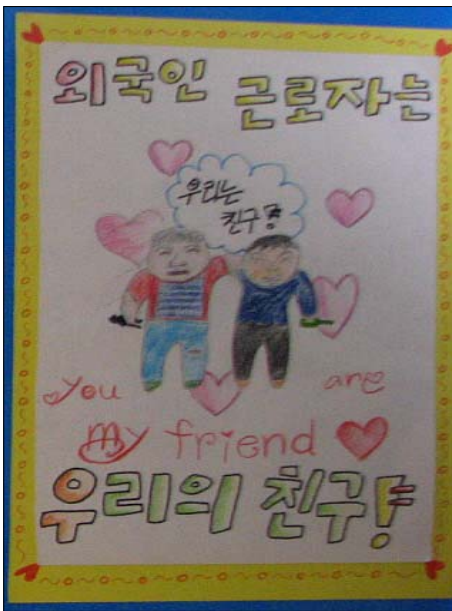 외국인 근로자는
우리는
친구!
you are
my friend
우리의 친구!